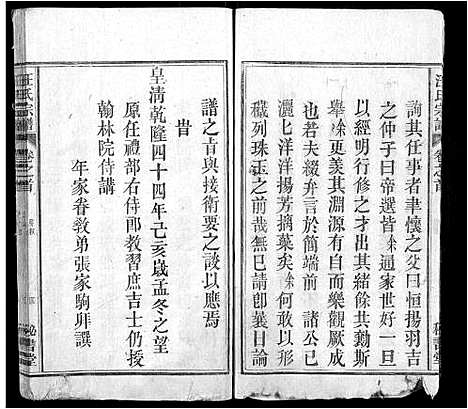 汪氏宗譜
卷之首
詢其任事者聿懷之父曰恒揚羽吉
之仲子曰帝選皆余通家世好一旦
以經明行修之才出其緒餘共勷斯
舉余更羨其淵源有自而樂觀厥成
若夫綴弁言於簡端前 諸公已
灑七洋洋揚芳摛菓矣余何敢以形
穢列珠玉之前哉無已請即曩日論
譜之旨與接衛要之談以應焉
旹
皇清乾隆四十四年己亥歲孟冬之望
原任禮部右侍郎教習庶吉士仍授
翰林院侍講
年家眷教弟張家駒拜譔
汪氏宗譜
卷之首